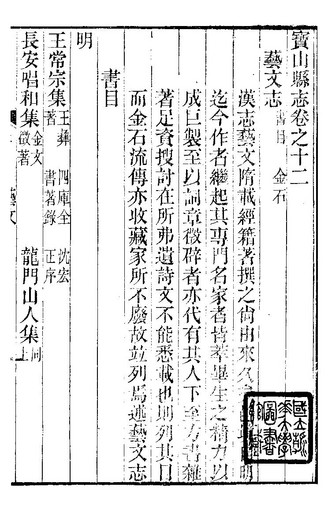 寶山縣志卷之十二
藝文志 書目 金石
漢志藝文隋載經籍著撰之尙由來久
迄今作者繼起其專門名家者皆萃畢生之精力以
成巨製至以詞章徵辟者亦代有其人下至方書雜
著足資搜討在所弗遺詩文不能悉載也則列其目
而金石流傳亦收藏家所不廢故竝列焉述藝文志
書目
明
王常宗集 王彝著 四庫全書著錄 沈宏正序
長安唱和集 金文徵著 龍門山人集 同上